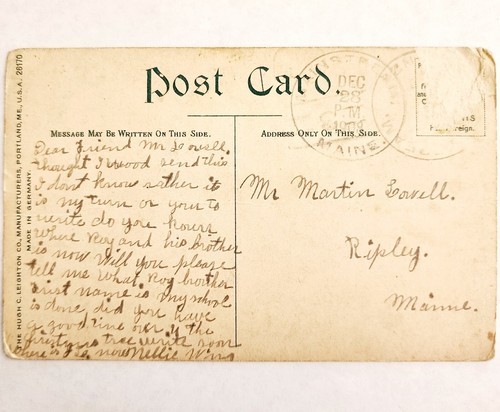 Post Card.
MESSAGE MAY BE WRITTEN ON THIS SIDE.
ADDRESS ONLY ON THIS SIDE.
THE HUGH C. LEIGHTON CO., MANUFACTURERS, PORTLAND, ME., U.S.A. 26170
MADE IN GERMANY.
DEC
28
PM
MAINE.
Dear Friend Mr Lowell.
thought I wood send this
I dont know rather it
is my turn or your to
write do you known
where Roy and his brother
is now will you please
tell me what Roy brother
first name is my school
is done did you have
a good time over to the
christmas tree write soon
there is no snow Nellie
Mr Martin Lowell.
Ripley.
Manne.